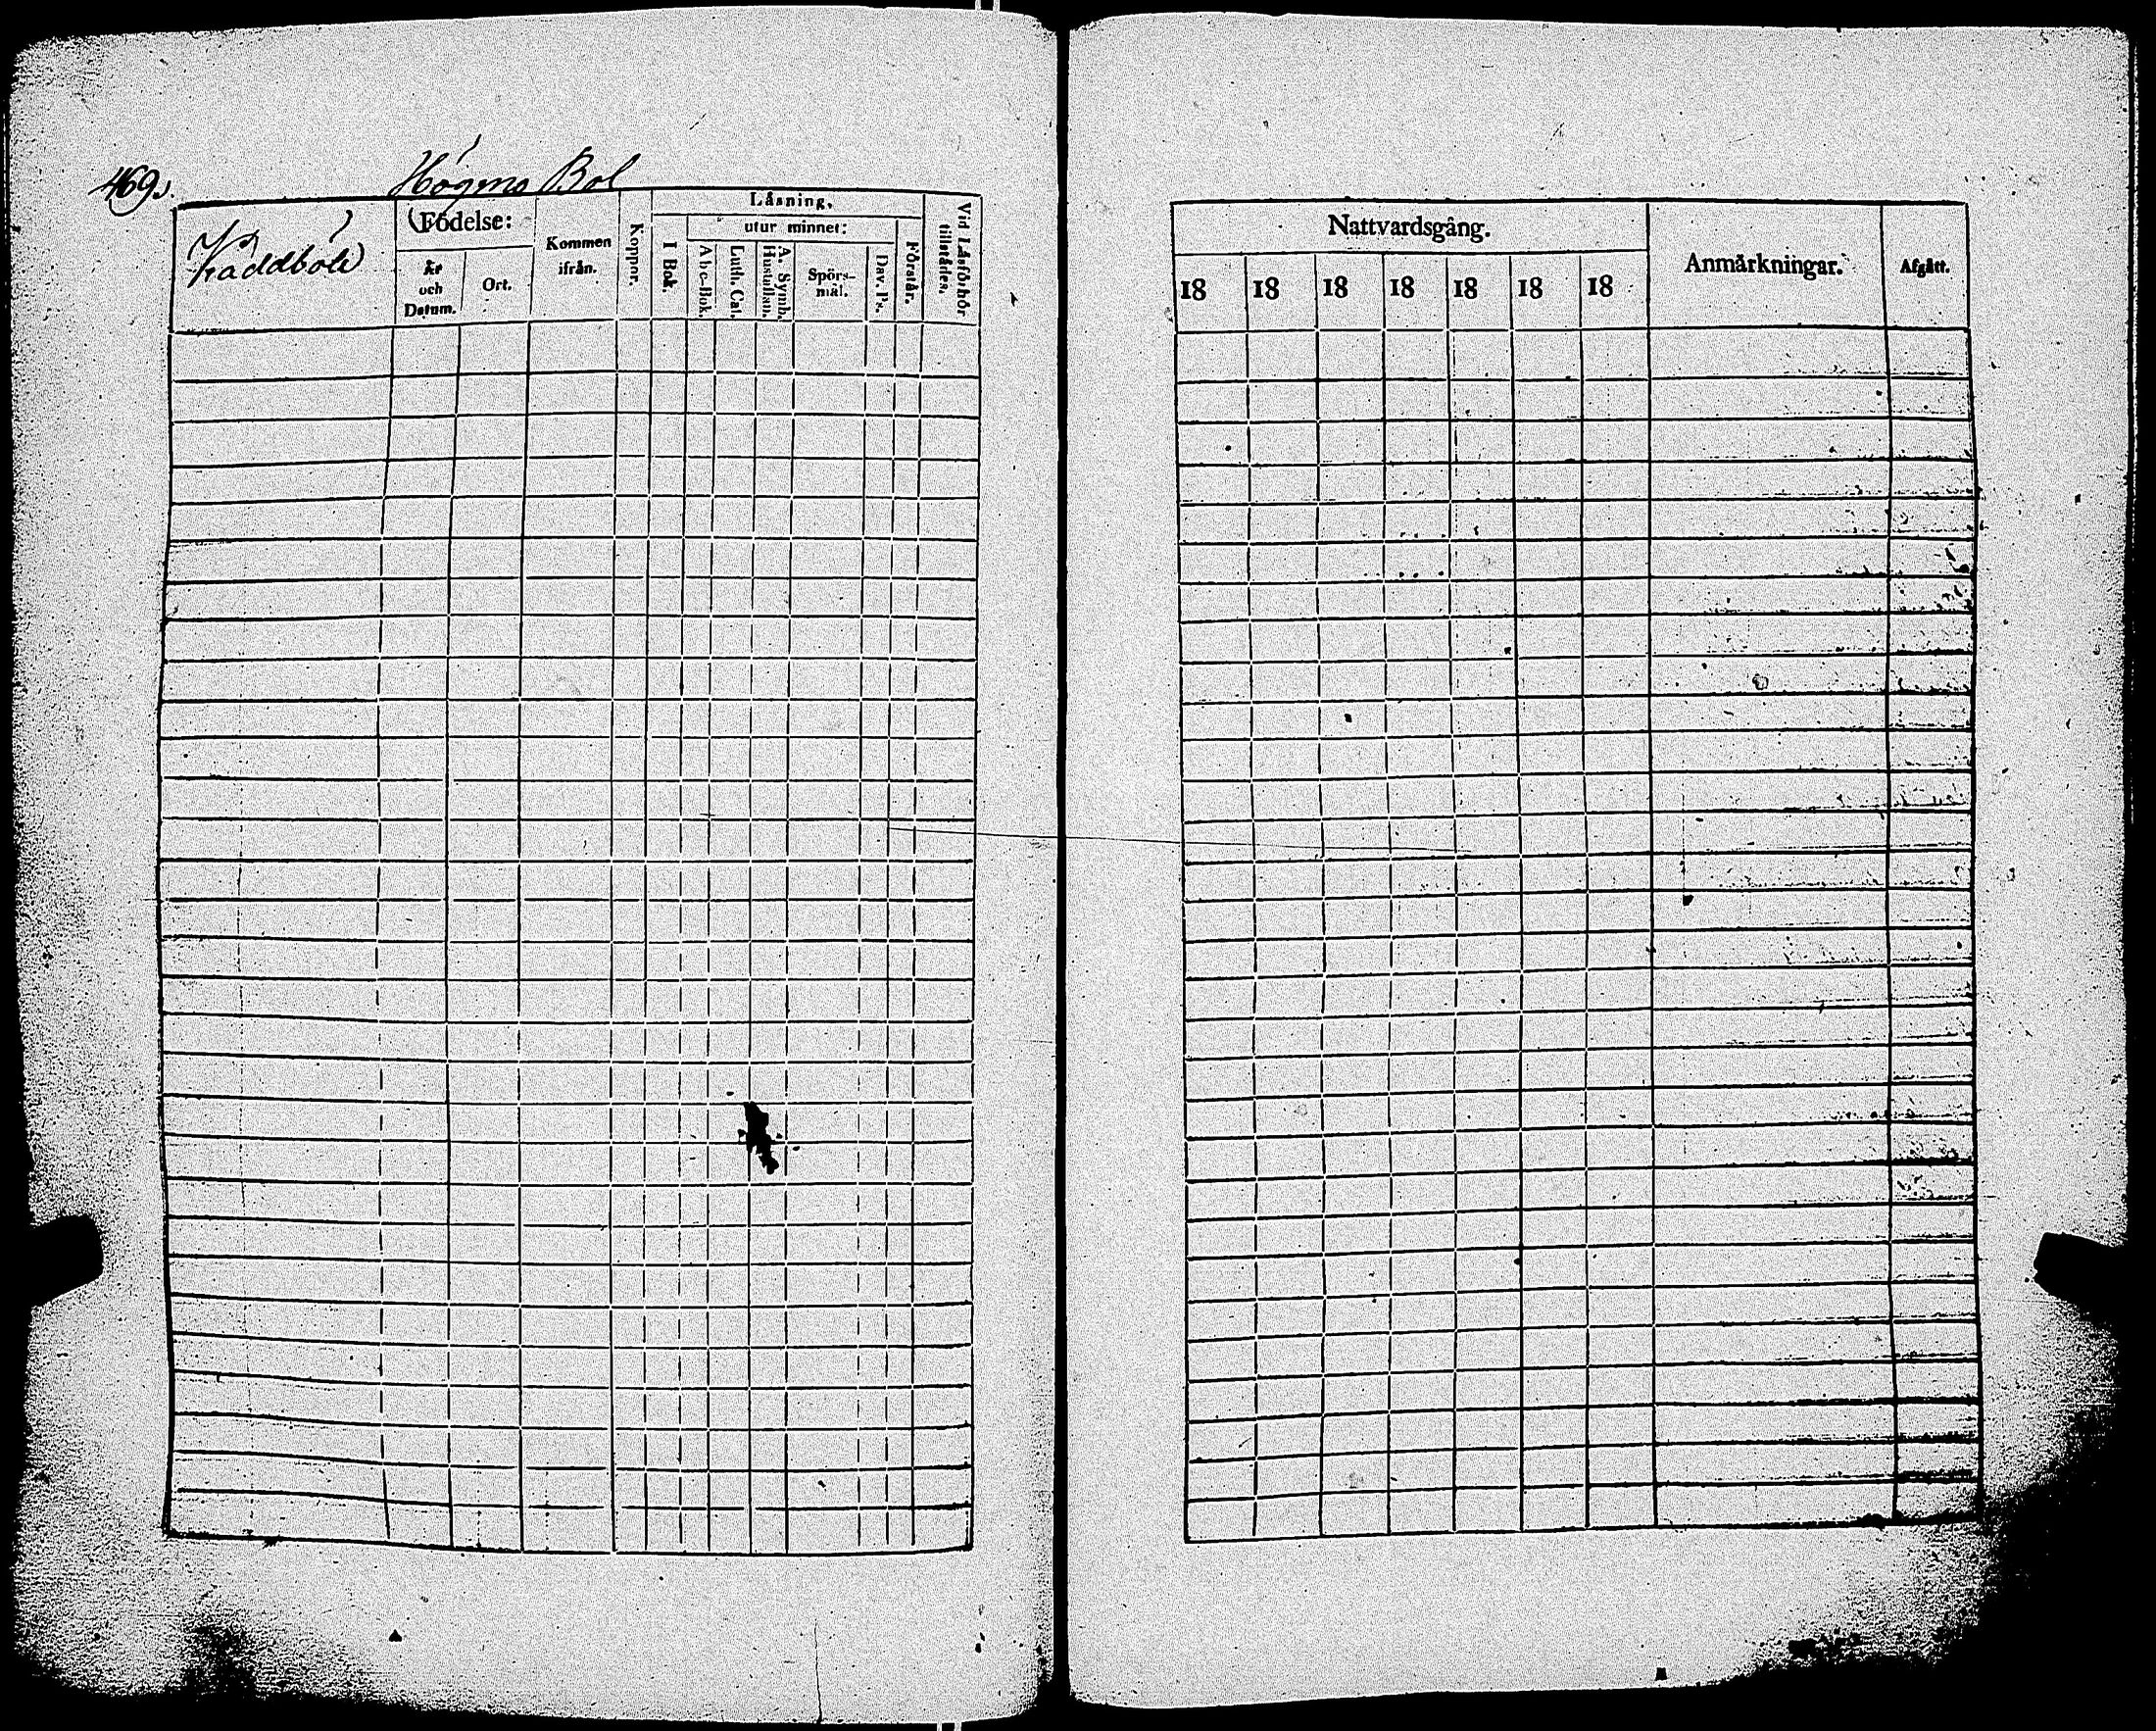 469.
Högens Bol
Födelse:
År
och
Datum.
Ort.
Kommen
ifrån.
Koppor.
Läsning,
I Bok.
utur minnet:
Abc-Bok.
Luth. Cat.
A. Symb.
Hustaflan.
Spörs-
mål.
Dav. Ps.
Förstår.
Vid Läsförhör
tillstädes.
Nattvardsgång.
18 18 18 18 18 18 18
Anmärkningar.
Afgått.